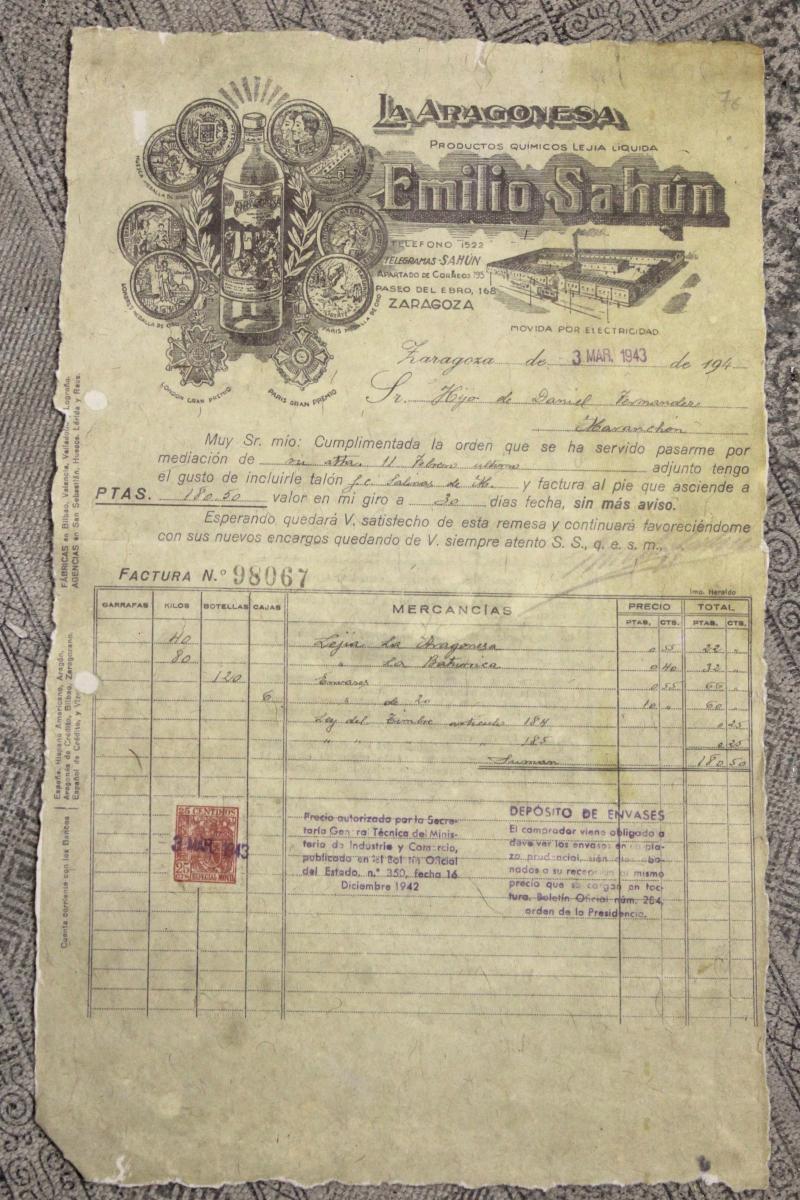 76
LA ARAGONESA
PRODUCTOS QUÍMICOS LEJIA LÍQUIDA
Emilio Sahún
TELEFONO 1522
TELEGRAMAS-SAHÚN
APARTADO DE CORREOS 195
PASEO DEL EBRO, 168
ZARAGOZA
MOVIDA POR ELECTRICIDAD
HUESCA MEDALLA DE ORO
LONDRES MEDALLA DE ORO
PARIS MEDALLA DE ORO
LONDON GRAN PREMIO
PARIS GRAN PREMIO
Zaragoza de 3 MAR. 1943 de 194
Sr. Hijo de Daniel Fernandez
Maranchon
Muy Sr. mio: Cumplimentada la orden que se ha servido pasarme por
mediación de su atta. 11 Febrero ultimo adjunto tengo
el gusto de incluirle talón f.c. Salinas de M. y factura al pie que asciende a
PTAS. 180.50 valor en mi giro a 30 días fecha, sin más aviso.
Esperando quedará V. satisfecho de esta remesa y continuará favoreciéndome
con sus nuevos encargos quedando de V. siempre atento S. S., q. e. s. m.,
FACTURA N.º 98067
Imp. Heraldo
GARRAFAS KILOS BOTELLAS CAJAS MERCANCÍAS PRECIO TOTAL
PTAS. CTS. PTAS. CTS.
40 Lejia La Aragonesa 0 55 22 "
80 " La Baturrica 0 40 32 "
120 Envases 0 55 66 "
6 " de 20 10 " 60 "
Ley del Timbre articulo 184 0 25
" " " 185 0 25
Suman 180 50
25 CENTIMOS
3 MAR. 1943
25 CTS. ESPECIAL MOVIL
Precio autorizado por la Secre-
taría General Técnica del Minis-
terio de Industria y Comercio,
publicado en el Boletín Oficial
del Estado, n.º 350, fecha 16
Diciembre 1942
DEPÓSITO DE ENVASES
El comprador viene obligado a
devolver los envases en un pla-
zo prudencial, siéndole abo-
nados a su recepción al mismo
precio que se cargan en fac-
tura. Boletín Oficial núm. 264,
orden de la Presidencia.
FÁBRICAS en Bilbao, Valencia, Valladolid, Logroño.
AGENCIAS en San Sebastián, Huesca, Lérida y Reus.
Cuenta corriente con los Bancos
España, Hispano Americano, Aragón,
Aragonés de Crédito, Bilbao, Zaragozano,
Español de Crédito, y Vizcaya